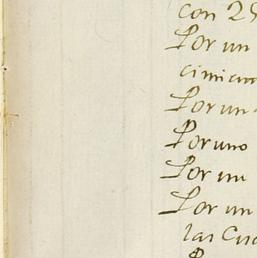 con 25
Por un
cimien
Por un
Por uno
Por un
Por un
las Cu